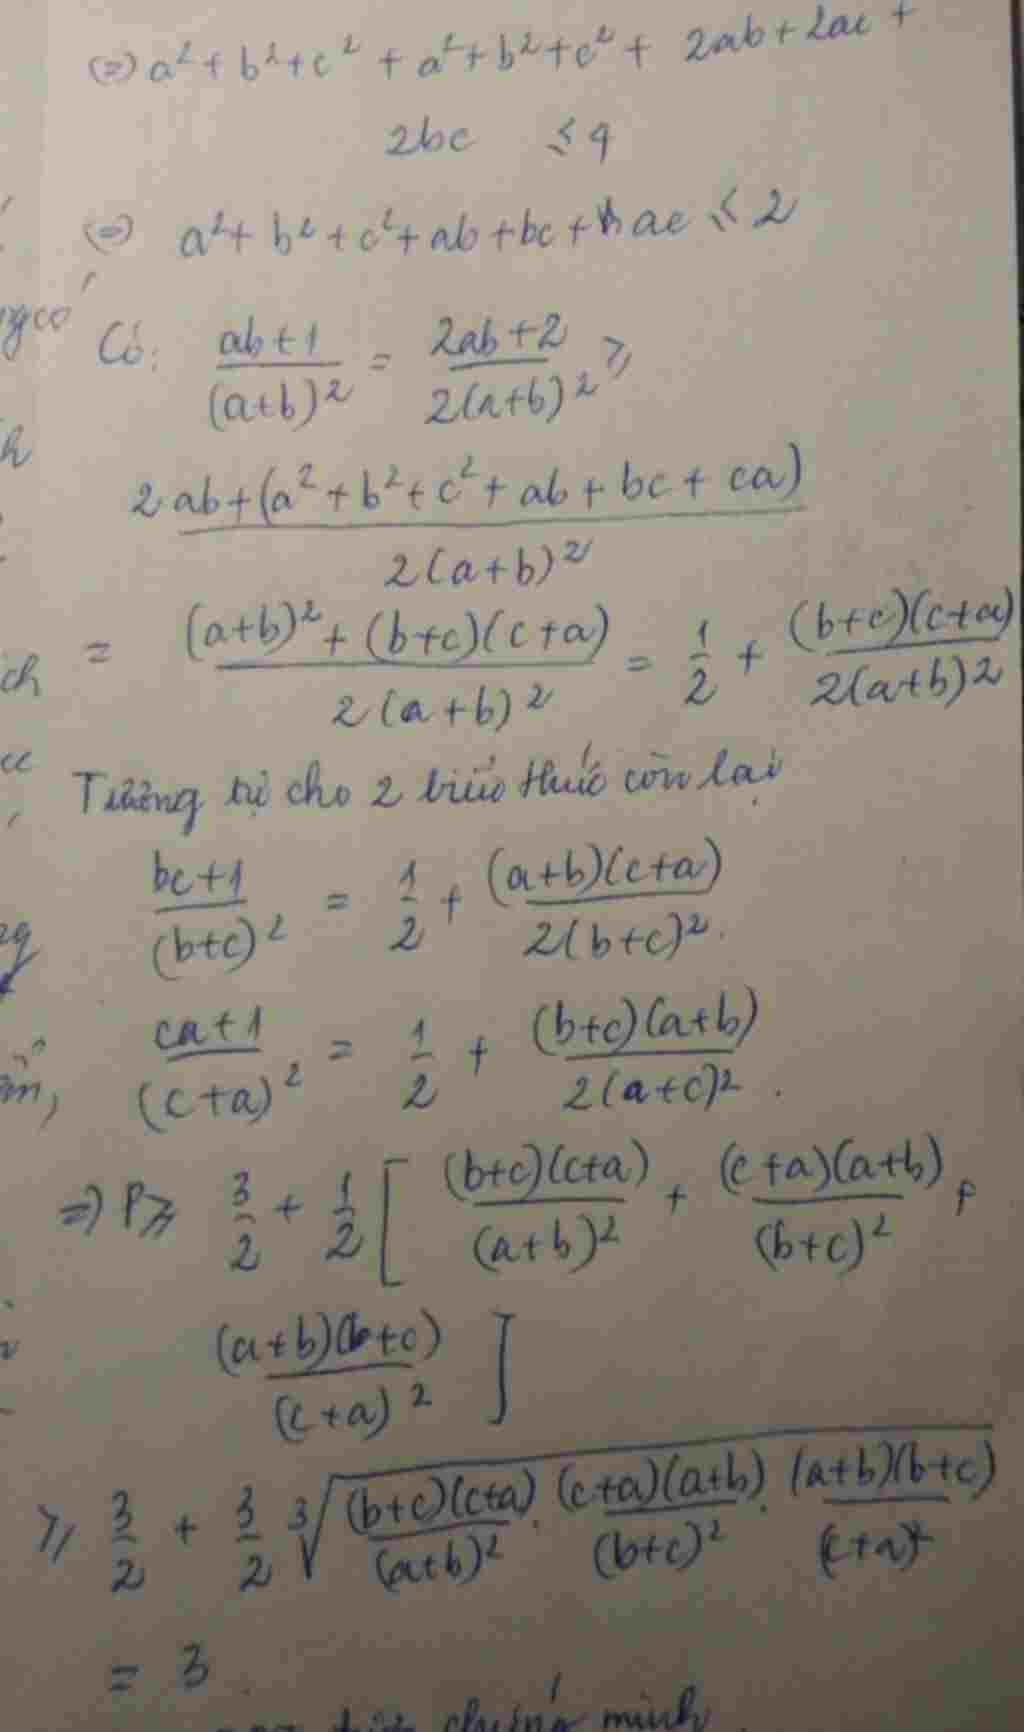 (=) a² + b² + c² + a² + b² + c² + 2ab + 2ac +
2bc ≤ 4
(=) a² + b² + c² + ab + bc + ac ≤ 2
Có: (ab+1)/(a+b)² = (2ab+2)/(2(a+b)²) ≥
(2ab + (a² + b² + c² + ab + bc + ca))/(2(a+b)²)
= ((a+b)² + (b+c)(c+a))/(2(a+b)²) = 1/2 + ((b+c)(c+a))/(2(a+b)²)
Tương tự cho 2 biểu thức còn lại
(bc+1)/(b+c)² = 1/2 + ((a+b)(c+a))/(2(b+c)²).
(ca+1)/(c+a)² = 1/2 + ((b+c)(a+b))/(2(a+c)²).
=) P ≥ 3/2 + 1/2 [ ((b+c)(c+a))/(a+b)² + ((c+a)(a+b))/(b+c)² +
((a+b)(b+c))/(c+a)² ]
≥ 3/2 + 3/2 ∛(((b+c)(c+a))/(a+b)² . ((c+a)(a+b))/(b+c)² . ((a+b)(b+c))/(c+a)²)
= 3.
chứng minh